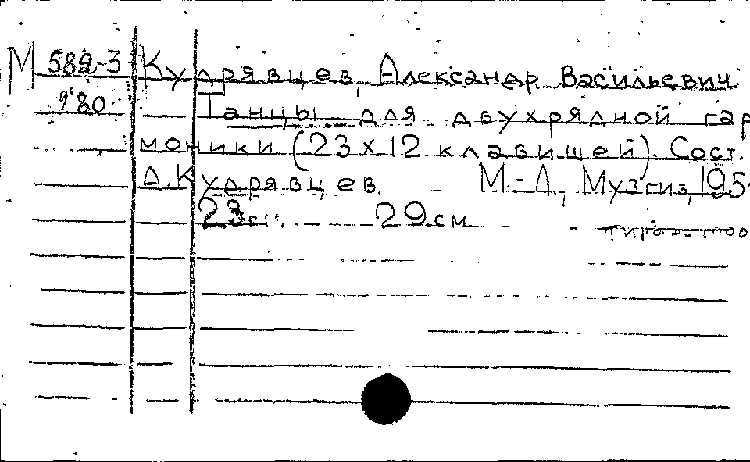 М 589-3 Кудрявцев, Александр Васильевич
9'80 Танцы для двухрядной гар
моники (23 х 12 клавишей). Сост.
А. Кудрявцев. М-Л, Музгиз, 195
23с. 29 см